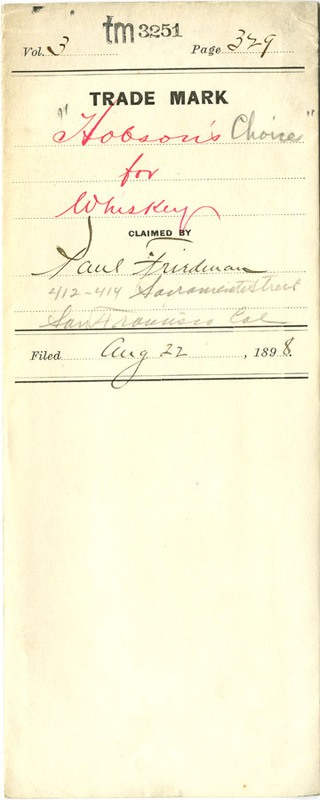 tm 3251
Vol. 3 Page 329
TRADE MARK
"Hobson's Choice"
for
Whiskey
CLAIMED BY
Paul Friedman
412-414 Sacramento Street
San Francisco Cal
Filed Aug 22, 1898.